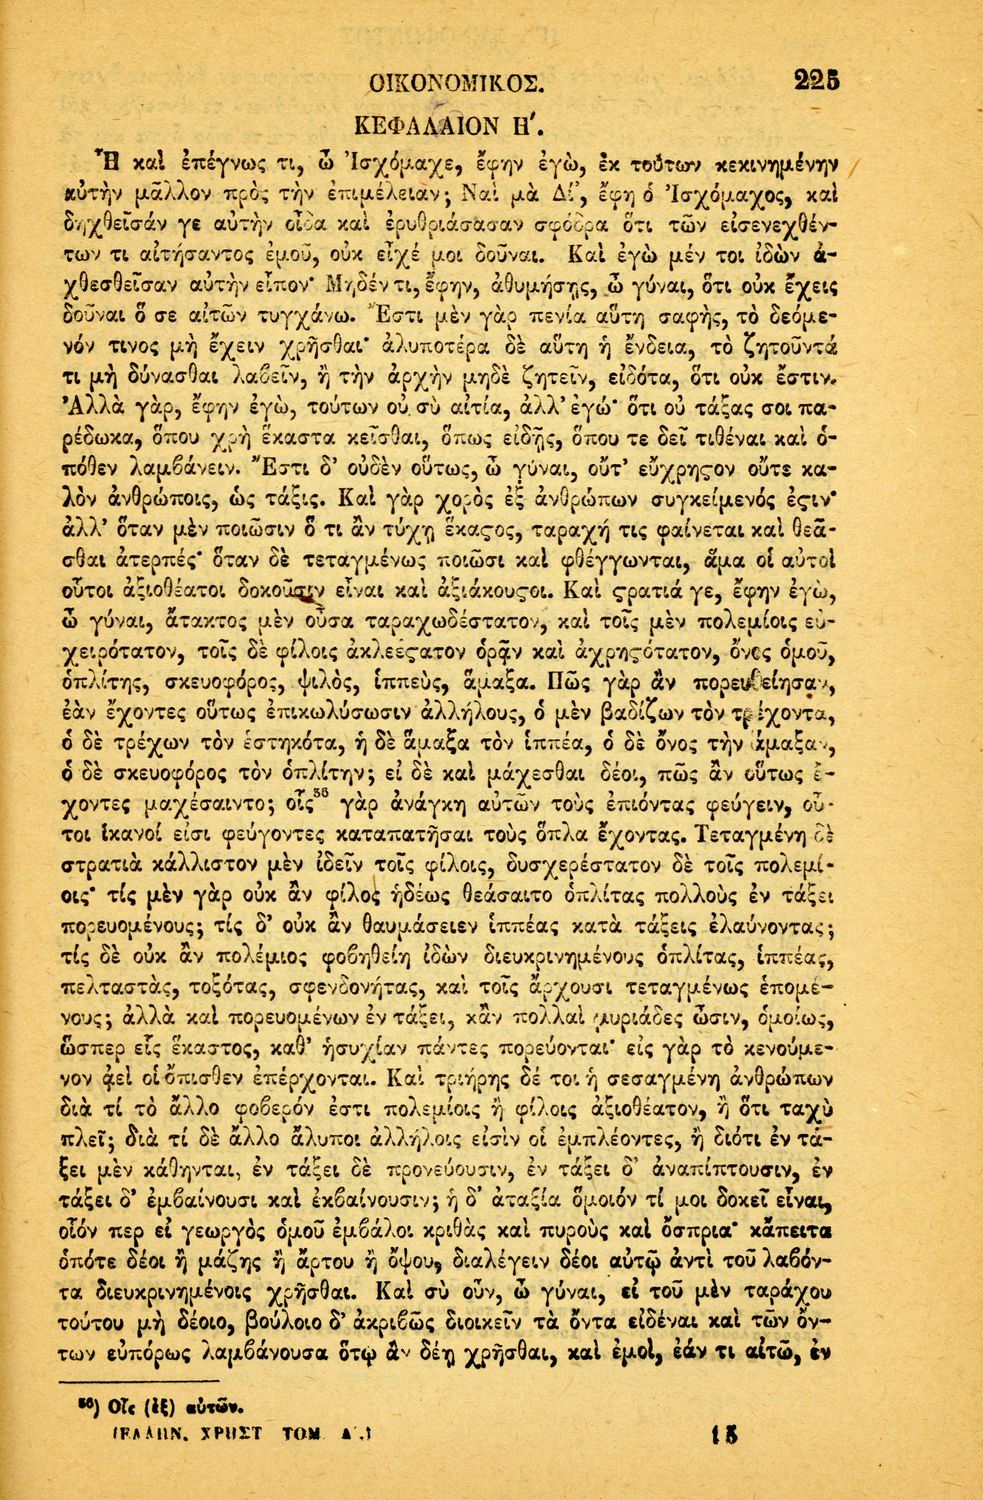 ΟΙΚΟΝΟΜΙΚΟΣ. 225
ΚΕΦΑΛΑΙΟΝ Η΄.
Ἦ καὶ ἐπέγνως τι, ὦ Ἰσχόμαχε, ἔφην ἐγὼ, ἐκ τούτων κεκινημένην
αὐτὴν μᾶλλον πρὸς τὴν ἐπιμέλειαν; Ναὶ μὰ Δί’, ἔφη ὁ Ἰσχόμαχος, καὶ
δηχθεῖσάν γε αὐτὴν οἶδα καὶ ἐρυθριάσασαν σφόδρα ὅτι τῶν εἰσενεχθέν-
των τι αἰτήσαντος ἐμοῦ, οὐκ εἶχέ μοι δοῦναι. Καὶ ἐγὼ μέν τοι ἰδὼν ἀ-
χθεσθεῖσαν αὐτὴν εἶπον· Μηδέν τι, ἔφην, ἀθυμήσῃς, ὦ γύναι, ὅτι οὐκ ἔχεις
δοῦναι ὅ σε αἰτῶν τυγχάνω. Ἔστι μὲν γὰρ πενία αὕτη σαφὴς, τὸ δεόμε-
νόν τινος μὴ ἔχειν χρῆσθαι· ἀλυποτέρα δὲ αὕτη ἡ ἔνδεια, τὸ ζητοῦντά
τι μὴ δύνασθαι λαβεῖν, ἢ τὴν ἀρχὴν μηδὲ ζητεῖν, εἰδότα, ὅτι οὐκ ἔστιν.
Ἀλλὰ γὰρ, ἔφην ἐγὼ, τούτων οὐ σὺ αἰτία, ἀλλ’ ἐγώ· ὅτι οὐ τάξας σοι πα-
ρέδωκα, ὅπου χρὴ ἕκαστα κεῖσθαι, ὅπως εἰδῇς, ὅπου τε δεῖ τιθέναι καὶ ὁ-
πόθεν λαμβάνειν. Ἔστι δ’ οὐδὲν οὕτως, ὦ γύναι, οὔτ’ εὔχρηϛον οὔτε κα-
λὸν ἀνθρώποις, ὡς τάξις. Καὶ γὰρ χορὸς ἐξ ἀνθρώπων συγκείμενός ἐϛιν·
ἀλλ’ ὅταν μὲν ποιῶσιν ὅ τι ἂν τύχῃ ἕκαϛος, ταραχή τις φαίνεται καὶ θεᾶ-
σθαι ἀτερπές· ὅταν δὲ τεταγμένως ποιῶσι καὶ φθέγγωνται, ἅμα οἱ αὐτοὶ
οὗτοι ἀξιοθέατοι δοκοῦσιν εἶναι καὶ ἀξιάκουϛοι. Καὶ ϛρατιά γε, ἔφην ἐγὼ,
ὦ γύναι, ἄτακτος μὲν οὖσα ταραχωδέστατον, καὶ τοῖς μὲν πολεμίοις εὐ-
χειρότατον, τοῖς δὲ φίλοις ἀκλεέϛατον ὁρᾷν καὶ ἀχρηϛότατον, ὄνος ὁμοῦ,
ὁπλίτης, σκευοφόρος, ψιλὸς, ἱππεὺς, ἅμαξα. Πῶς γὰρ ἂν πορευθείησαν,
ἐὰν ἔχοντες οὕτως ἐπικωλύσωσιν ἀλλήλους, ὁ μὲν βαδίζων τὸν τρέχοντα,
ὁ δὲ τρέχων τὸν ἑστηκότα, ἡ δὲ ἅμαξα τὸν ἱππέα, ὁ δὲ ὄνος τὴν ἅμαξαν,
ὁ δὲ σκευοφόρος τὸν ὁπλίτην; εἰ δὲ καὶ μάχεσθαι δέοι, πῶς ἂν οὕτως ἔ-
χοντες μαχέσαιντο; οἷς⁵⁶ γὰρ ἀνάγκη αὐτῶν τοὺς ἐπιόντας φεύγειν, οὗ-
τοι ἱκανοί εἰσι φεύγοντες καταπατῆσαι τοὺς ὅπλα ἔχοντας. Τεταγμένη δὲ
στρατιὰ κάλλιστον μὲν ἰδεῖν τοῖς φίλοις, δυσχερέστατον δὲ τοῖς πολεμί-
οις· τίς μὲν γὰρ οὐκ ἂν φίλος ἡδέως θεάσαιτο ὁπλίτας πολλοὺς ἐν τάξει
πορευομένους; τίς δ’ οὐκ ἂν θαυμάσειεν ἱππέας κατὰ τάξεις ἐλαύνοντας;
τίς δὲ οὐκ ἂν πολέμιος φοβηθείη ἰδὼν διευκρινημένους ὁπλίτας, ἱππέας,
πελταστὰς, τοξότας, σφενδονήτας, καὶ τοῖς ἄρχουσι τεταγμένως ἑπομέ-
νους; ἀλλὰ καὶ πορευομένων ἐν τάξει, κἂν πολλαὶ μυριάδες ὦσιν, ὁμοίως,
ὥσπερ εἷς ἕκαστος, καθ’ ἡσυχίαν πάντες πορεύονται· εἰς γὰρ τὸ κενούμε-
νον ἀεὶ οἱ ὄπισθεν ἐπέρχονται. Καὶ τριήρης δέ τοι ἡ σεσαγμένη ἀνθρώπων
διὰ τί τὸ ἄλλο φοβερόν ἐστι πολεμίοις ἢ φίλοις ἀξιοθέατον, ἢ ὅτι ταχὺ
πλεῖ; διὰ τί δὲ ἄλλο ἄλυποι ἀλλήλοις εἰσὶν οἱ ἐμπλέοντες, ἢ διότι ἐν τά-
ξει μὲν κάθηνται, ἐν τάξει δὲ προνεύουσιν, ἐν τάξει δ’ ἀναπίπτουσιν, ἐν
τάξει δ’ ἐμβαίνουσι καὶ ἐκβαίνουσιν; ἡ δ’ ἀταξία ὅμοιόν τί μοι δοκεῖ εἶναι,
οἷόν περ εἰ γεωργὸς ὁμοῦ ἐμβάλοι κριθὰς καὶ πυροὺς καὶ ὄσπρια· κἄπειτα
ὁπότε δέοι ἢ μάζης ἢ ἄρτου ἢ ὄψου, διαλέγειν δέοι αὐτῷ ἀντὶ τοῦ λαβόν-
τα διευκρινημένοις χρῆσθαι. Καὶ σὺ οὖν, ὦ γύναι, εἰ τοῦ μὲν ταράχου
τούτου μὴ δέοιο, βούλοιο δ’ ἀκριβῶς διοικεῖν τὰ ὄντα εἰδέναι καὶ τῶν ὄν-
των εὐπόρως λαμβάνουσα ὅτῳ ἂν δέῃ χρῆσθαι, καὶ ἐμοὶ, ἐάν τι αἰτῶ, ἐν
⁵⁶) Οἷς (ἐξ) αὐτῶν.
(ΕΛΛΗΝ. ΧΡΗΣΤ ΤΟΜ Α΄.) 15